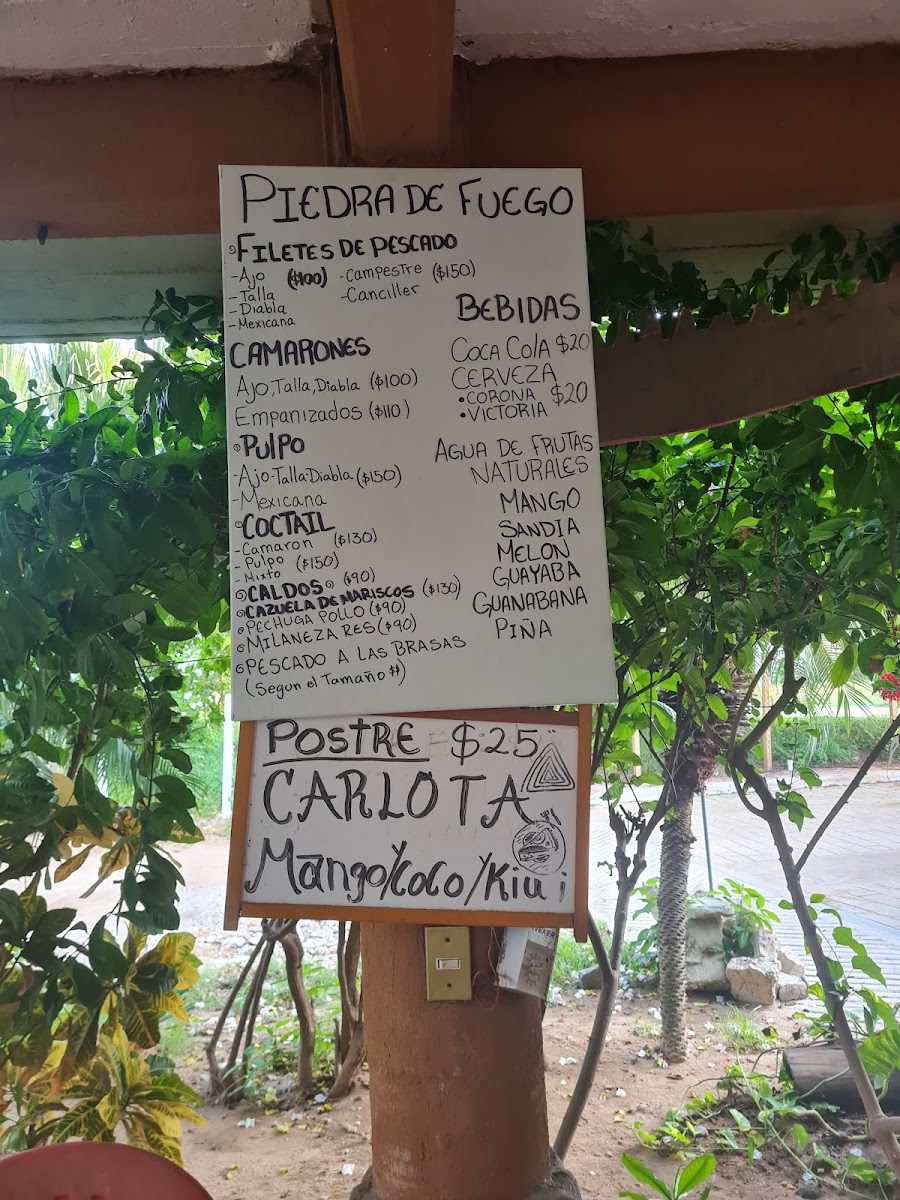 PIEDRA DE FUEGO
FILETES DE PESCADO
-Ajo ($100) -CAMPESTRE ($150)
-Talla -Canciller
-Diabla
-Mexicana
CAMARONES
Ajo,Talla,Diabla ($100)
Empanizados ($110)
PULPO
-Ajo-Talla Diabla ($150)
-Mexicana
COCTAIL
-Camaron ($130)
-Pulpo ($150)
-Mixto
CALDOS ($90)
CAZUELA DE MARISCOS ($130)
PECHUGA POLLO ($90)
MILANEZA RES ($90)
PESCADO A LAS BRASAS
(Segun el Tamaño $)
BEBIDAS
COCA COLA $20
CERVEZA
•CORONA $20
•VICTORIA
AGUA DE FRUTAS
NATURALES
MANGO
SANDIA
MELON
GUAYABA
GUANABANA
PIÑA
POSTRE $25
CARLOTA
Mango/Coco/Kiwi